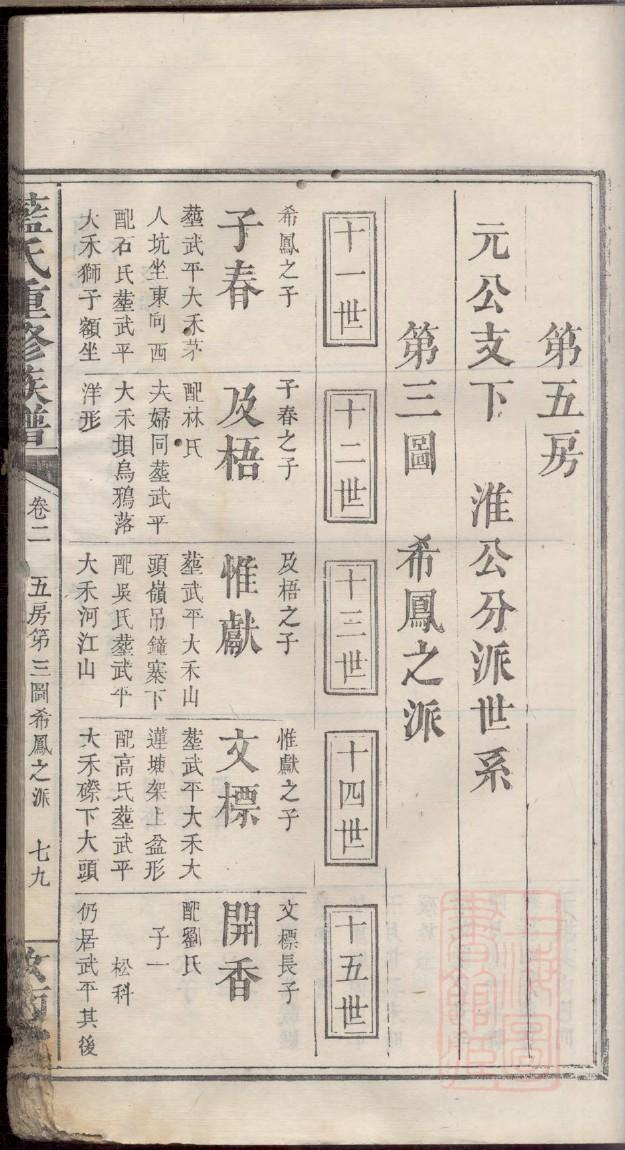 第五房
元公支下　淮公分派世系
第三圖　希鳳之派
十一世
十二世
十三世
十四世
十五世
希鳳之子
子春
塟武平大禾茅
人坑坐東向西
配石氏塟武平
大禾獅子額坐
子春之子
及梧
配林氏
夫婦同塟武平
大禾垻烏鴉落
洋形
及梧之子
惟獻
塟武平大禾山
頭嶺吊鐘寨下
配吳氏塟武平
大禾河江山
惟獻之子
文標
塟武平大禾大
蓮塘架上盆形
配高氏塟武平
大禾磜下大頭
文標長子
開香
配劉氏
子一
松科
仍居武平其後
藍氏重修族譜
卷二　五房第三圖希鳳之派　七九